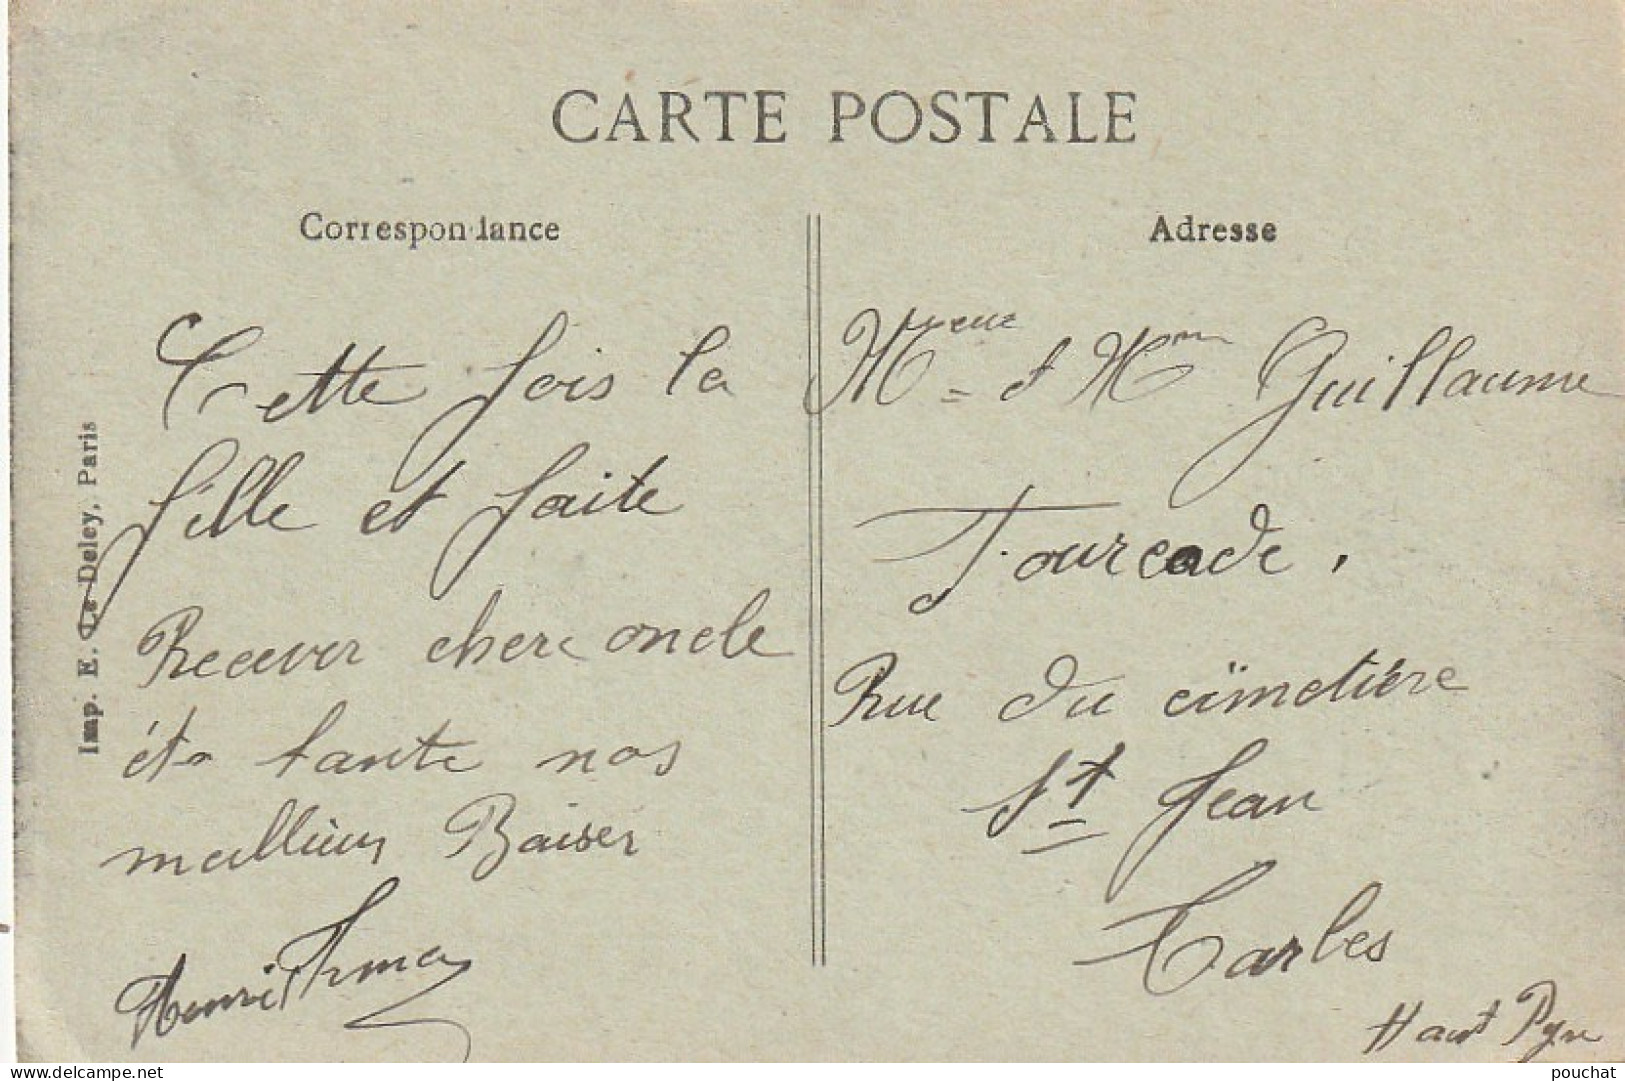 CARTE POSTALE
Correspondance
Cette fois la
fille et faite
Recever chere oncle
et tante nos
meillieur Baiser
Henri
Adresse
Guillaume
Fourcade.
Rue du cïmetière
St Jean
Tarbes
Haut Pyn
Imp. E. Le Deley, Paris
www.delcampe.net
pouchat